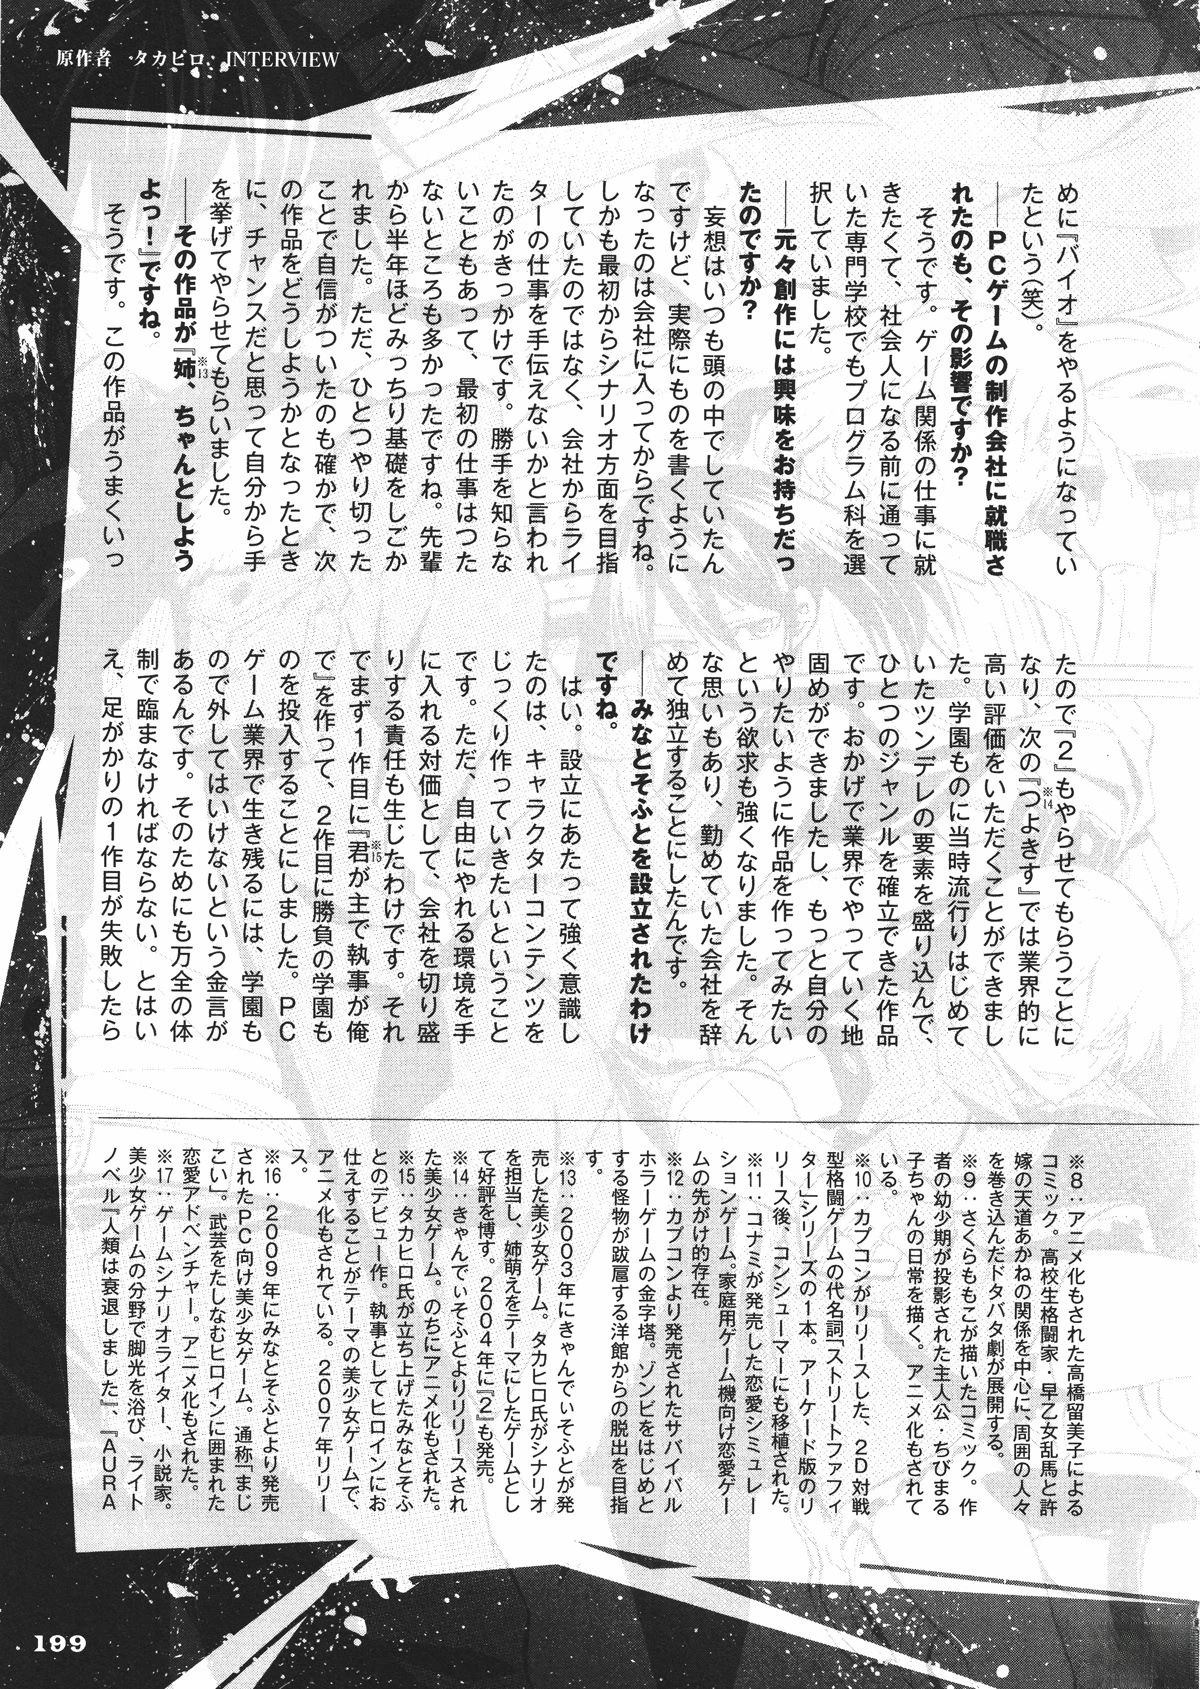 原作者 タカヒロ INTERVIEW
めに『バイオ』をやるようになってい
たという(笑)。
――PCゲームの制作会社に就職さ
れたのも、その影響ですか?
そうです。ゲーム関係の仕事に就
きたくて、社会人になる前に通って
いた専門学校でもプログラム科を選
択していました。
――元々創作には興味をお持ちだっ
たのですか?
妄想はいつも頭の中でしていたん
ですけど、実際にものを書くように
なったのは会社に入ってからですね。
しかも最初からシナリオ方面を目指
していたのではなく、会社からライ
ターの仕事を手伝えないかと言われ
たのがきっかけです。勝手を知らな
いこともあって、最初の仕事はつた
ないところも多かったですね。先輩
から半年ほどみっちり基礎をしごか
れました。ただ、ひとつやり切った
ことで自信がついたのも確かで、次
の作品をどうしようかとなったとき
に、チャンスだと思って自分から手
を挙げてやらせてもらいました。
――その作品が『姉、ちゃんとしよう
※13
よっ!』ですね。
そうです。この作品がうまくいっ
たので『2』もやらせてもらうことに
なり、次の『つよきす』では業界的に
※14
高い評価をいただくことができまし
た。学園ものに当時流行りはじめて
いたツンデレの要素を盛り込んで、
ひとつのジャンルを確立できた作品
です。おかげで業界でやっていく地
固めができましたし、もっと自分の
やりたいように作品を作ってみたい
という欲求も強くなりました。そん
な思いもあり、勤めていた会社を辞
めて独立することにしたんです。
――みなとそふとを設立されたわけ
ですね。
はい。設立にあたって強く意識し
たのは、キャラクターコンテンツを
じっくり作っていきたいということ
です。ただ、自由にやれる環境を手
に入れる対価として、会社を切り盛
りする責任も生じたわけです。それ
でまず1作目に『君が主で執事が俺
※15
で』を作って、2作目に勝負の学園も
のを投入することにしました。PC
ゲーム業界で生き残るには、学園も
ので外してはいけないという金言が
あるんです。そのためにも万全の体
制で臨まなければならない。とはい
え、足がかりの1作目が失敗したら
※8:アニメ化もされた高橋留美子による
コミック。高校生格闘家・早乙女乱馬と許
嫁の天道あかねの関係を中心に、周囲の人々
を巻き込んだドタバタ劇が展開する。
※9:さくらももこが描いたコミック。作
者の幼少期が投影された主人公・ちびまる
子ちゃんの日常を描く。アニメ化もされて
いる。
※10:カプコンがリリースした、2D対戦
型格闘ゲームの代名詞「ストリートファイ
ター」シリーズの1本。アーケード版のリ
リース後、コンシューマーにも移植された。
※11:コナミが発売した恋愛シミュレー
ションゲーム。家庭用ゲーム機向け恋愛ゲー
ムの先がけ的存在。
※12:カプコンより発売されたサバイバル
ホラーゲームの金字塔。ゾンビをはじめと
する怪物が跋扈する洋館からの脱出を目指
す。
※13:2003年にきゃんでぃそふとが発
売した美少女ゲーム。タカヒロ氏がシナリオ
を担当し、姉萌えをテーマにしたゲームとし
て好評を博す。2004年に『2』も発売。
※14:きゃんでぃそふとよりリリースされ
た美少女ゲーム。のちにアニメ化もされた。
※15:タカヒロ氏が立ち上げたみなとそふ
とのデビュー作。執事としてヒロインにお
仕えすることがテーマの美少女ゲームで、
アニメ化もされている。2007年リリー
ス。
※16:2009年にみなとそふとより発売
されたPC向け美少女ゲーム。通称「まじ
こい」。武芸をたしなむヒロインに囲まれた
恋愛アドベンチャー。アニメ化もされた。
※17:ゲームシナリオライター、小説家。
美少女ゲームの分野で脚光を浴び、ライト
ノベル『人類は衰退しました』、『AURA
199